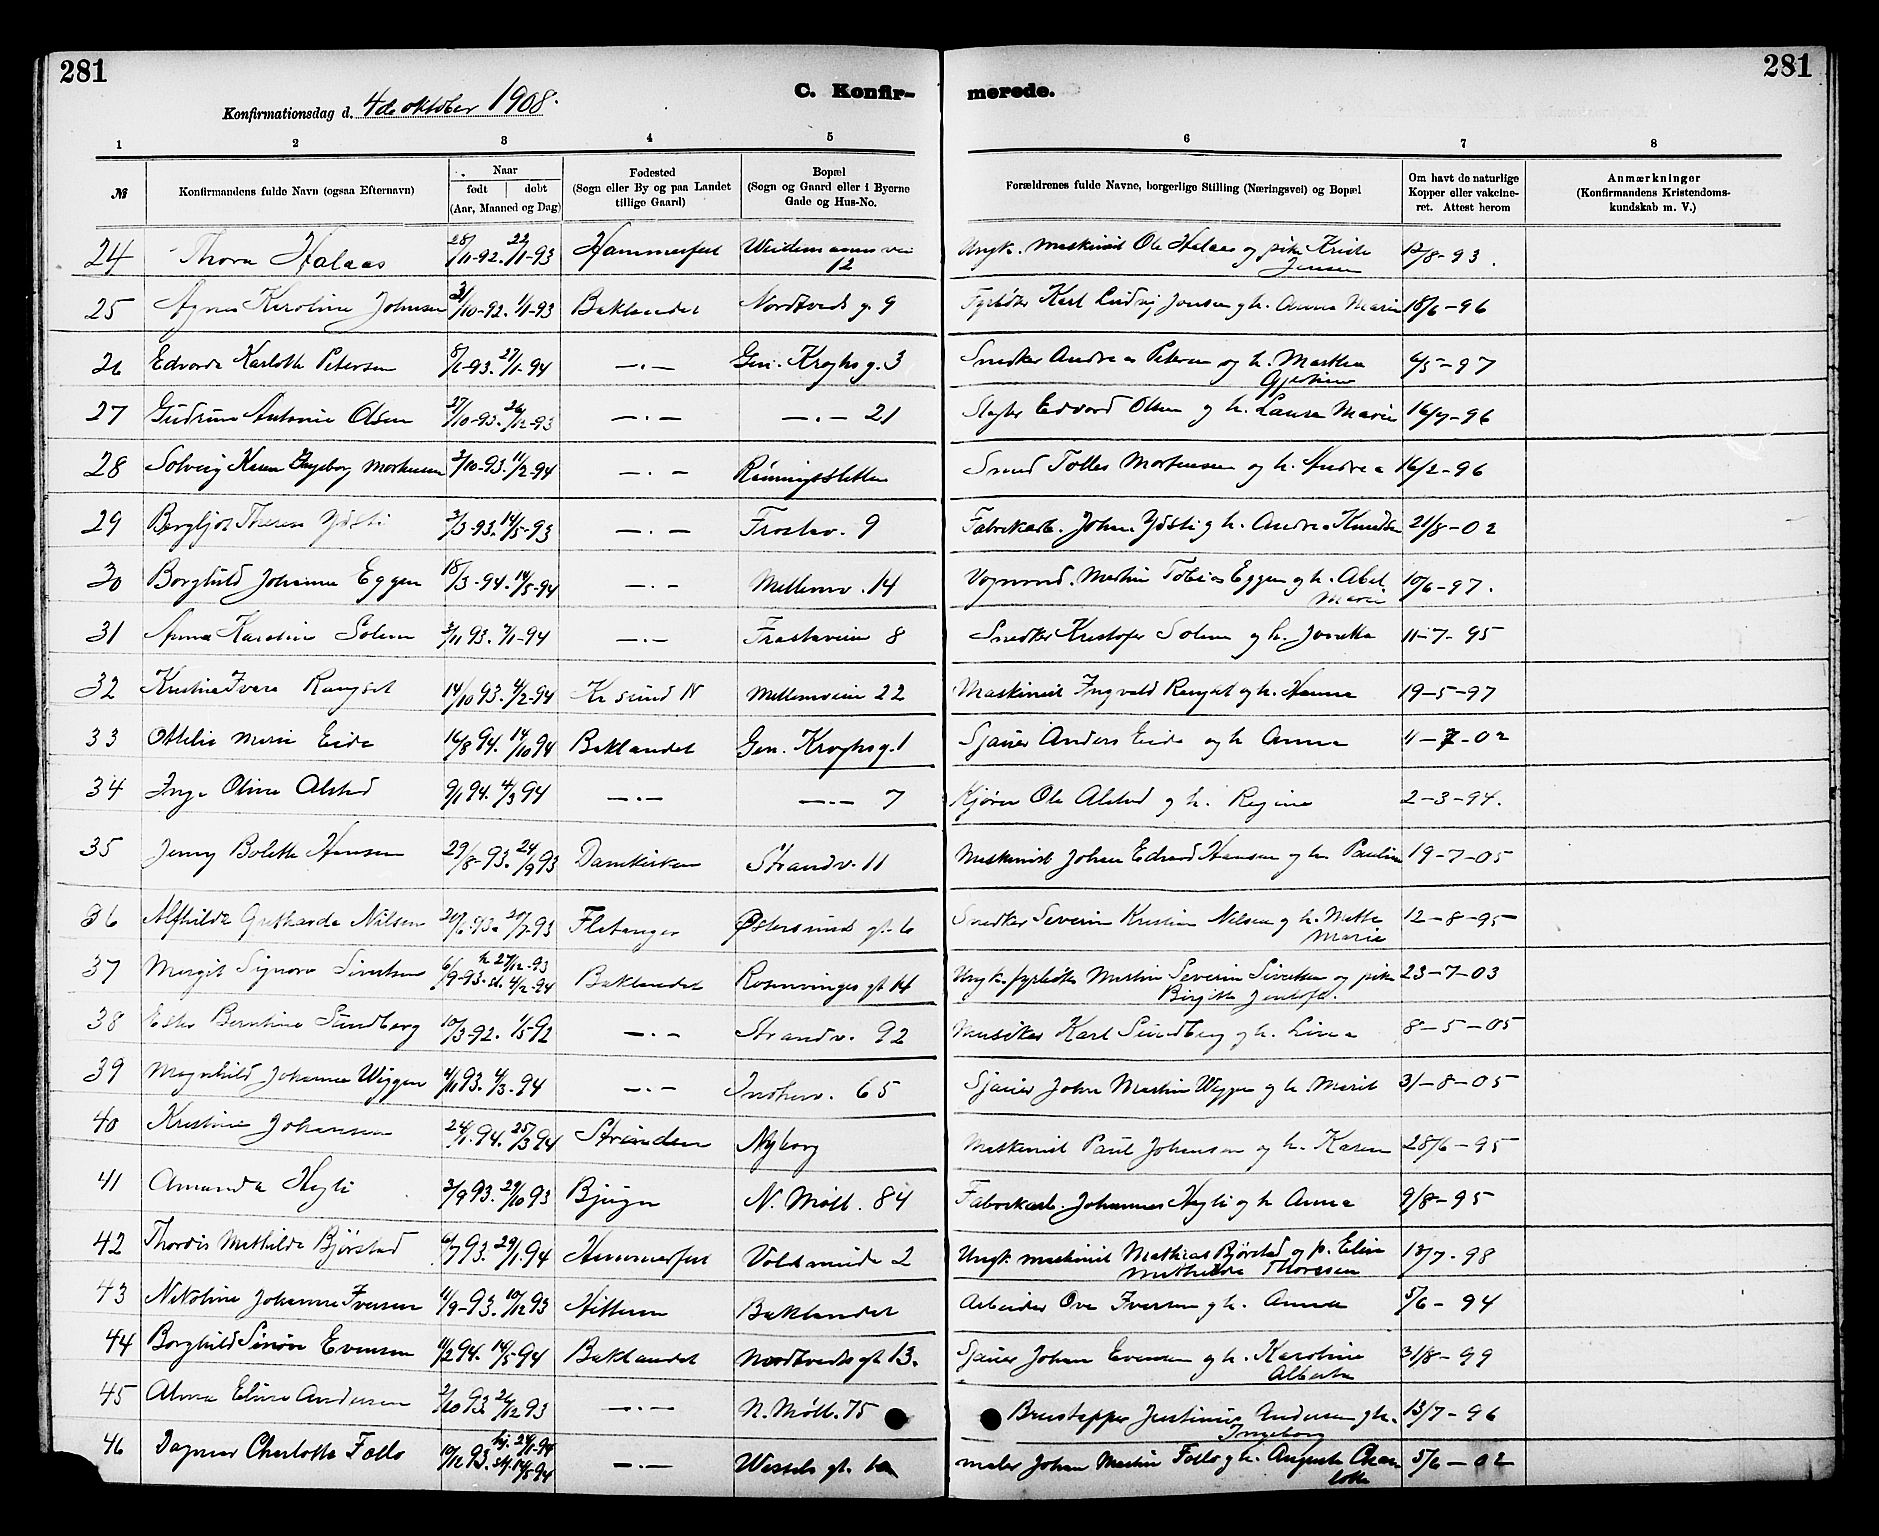 281
281
Konfirmationsdag d. 4de oktober 1908.
C. Konfir- merede.
1 2 3 4 5 6 7 8
№ Konfirmandens fulde Navn (ogsaa Efternavn) Naar født døbt (Aar, Maaned og Dag) Fødested (Sogn eller By og paa Landet tillige Gaard) Bopæl (Sogn og Gaard eller i Byerne Gade og Hus-No. Forældrenes fulde Navne, borgerlige Stilling (Næringsvei) og Bopæl Om havt de naturlige Kopper eller vakcineret. Attest herom Anmærkninger (Konfirmandens Kristendomskundskab m. V.)
24 Thora Halaas 28/11-92. 22/1-93 Hammerfest Weidemannsvei 12 Ungk. maskinist Ole Halaas og pike Kristi Jensen 12/8-93.
25 Agnes Karoline Johnsen 31/10-92. 1/1-93 Baklandet Nordtveds g. 9 Fyrbøter Karl Ludvig Jonsen og h. Anna Marie 18/6-96
26 Edvarda Karlotte Petersen 8/1-93. 27/1-94 —.— Gen. Kroghs g. 3 Snedker Andreas Petersen og h. Marthea Gjertine 6/5-97
27 Gudrun Antonie Olsen 27/10-93. 26/12-93 —.— —.— 21 Slagter Edvard Olsen og h. Laura Marie 16/7-96
28 Solveig Karen Ingeborg Mortensen 2/10-93. 11/2-94 —.— Rønningsletten Smed Tolles Mortensen og h. Andrea 16/2-96
29 Bergljot Therese Ydsti 2/3-93. 14/5-93 —.— Frostav. 9 Fabrikarb. Johan Ydsti og h. Andrea Knudsen 21/8-02
30 Borghild Johanne Eggen 18/3-94. 14/5-94 —.— Mellemv. 14 Vognmand. Martin Tobias Eggen og h. Abel Marie 10/6-97.
31 Anna Karoline Solem 3/11 93. 7/1-94 —.— Frostaveien 8 Snedker Kristofer Solem og h. Josefta 11-7-95
32 Kristine Ivara Rangset 14/10 93. 4/2-94 Kr sund N Mellemveien 22 Maskinist Ingvald Rangset og h. Hanna 19-5-97
33 Ottelie Marie Eide 16/8 94. 14/10 94 Baklandet Gen. Kroghs g. 1 Sjauer Anders Eide og h Anna 11-7-02
34 Inga Olina Alstad 9/1 94. 4/3 94 —.— —.— 7 Kjører Ole Alstad og h. Regine 2-3-94.
35 Jenny Bolette Hansen 29/8-93. 24/9 93 Domkirken Strandv. 11 Maskinist Johan Edvard Hansen og h. Pauline 19-7-05
36 Alfhilda Gretharda Nilsen 20/6-93. 20/7-93 Flatanger Østersunds gt. 6 Snedker Severin Kristian Nilsen og h. Mette Marie 12-8-95
37 Margit Signora Sivertsen 6/9-93. h 27/12-93 st. 4/2-94 Baklandet Rosenvinges gt 14 Ungk. fyrbøter Martin Severin Sivertsen og pike Birgitte Jentoft. 23-7-03
38 Ester Berntine Sundberg 10/3-92. 1/5 92 —.— Strandv. 92 Musiker Karl Sundberg og h. Lina 8-5-05
39 Magnhild Johanna Wiggen 4/11 93. 4/3-94 —.— Indherv. 65 Sjauer John Martin Wiggen og h. Marit 31-8-05
40 Kristine Johansen 24/1. 94. 25/3 94 Strinden Nyborg Maskinist Paul Johansen og h. Karen 28/6-95
41 Amanda Hegli 2/9 93. 29/10 93 Bjugn N. Møll. 84 Fabrikarb. Johannes Hegli og h Anna 9/8-95
42 Thordis Mathilde Bjørstad 6/7 93. 29/1. 94 Hammerfest Voldsminde 2 Ungk. maskinist Mathias Bjørstad og p. Elise Mathilde Thoresen 13/7-98
43 Nikoline Johanne Iversen 11/9-93. 10/12 93 Hitteren Baklandet Arbeider Ove Iversen og h. Anna 5/6-94
44 Borghild Sinøve Evensen 11/2 94. 14/5-94 Baklandet Nordtveds gt 13. Sjauer Johan Evensen og h. Karoline Alberta 31/8-99
45 Alma Elise Andersen 2/10 93. 26/12 93 —.— N. Møll. 75 Brustapper Justinus Andersen og h. Ingeborg 13/7-96
46 Dagmar Charlotte Follo 10/12 93. hj. 24/1-94 st. 14/5-94 —.— Wessels gt. 6a maler Johan Martin Follo og h. Augusta Charlotte 5/6-02